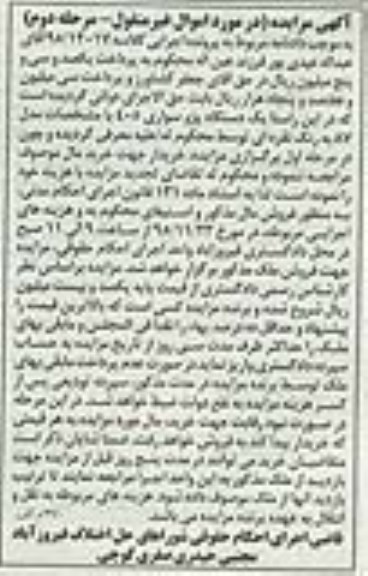 آگهی مزایده (در مورد اموال غیرمنقول - مرحله دوم)
به موجب دادنامه مربوط به پرونده اجرایی کلاسه آقای
عبداله عیدی پور فرزند عین اله محکوم به پرداخت یکصد و سی و
پنج میلیون ریال در حق آقای جعفر کشاورز و پرداخت سی میلیون
و هفتصد و پنجاه هزار ریال بابت حق الاجرای خوانی گردیده است
که در این راستا یک دستگاه پژو سواری ۴۰۵ با مشخصات مدل
۸۷ به رنگ نقره ای توسط محکوم له معرفی گردیده و چون
در مرحله اول برگزاری مزایده، خریدار جهت خرید مال موصوف
مراجعه ننموده و محکوم له تقاضای تجدید مزایده با هزینه خود
را نموده است لذا به استناد ماده ۱۳۱ قانون اجرای احکام مدنی،
به منظور فروش مال مذکور و محکوم به و هزینه های
اجرایی مربوطه، در مورخ ۹۸/۱۱/۲۳ از ساعت ۹ الی ۱۱ صبح
در محل دادگستری فیروزآباد واحد اجرای احکام حقوقی، مزایده
جهت فروش ملک مذکور برگزار خواهد شد. مزایده براساس نظر
کارشناس رسمی دادگستری از قیمت پایه یکصد و بیست میلیون
ریال شروع شده و برنده مزایده کسی است که بالاترین قیمت را
پیشنهاد و حداقل ده درصد بها را نقدا فی المجلس و مابقی بهای
ملک را حداکثر ظرف مدت سی روز از تاریخ مزایده به حساب
سپرده دادگستری واریز نماید در صورت عدم پرداخت مابقی بهای
ملک توسط برنده مزایده در مدت مذکور، سپرده تودیعی پس از
کسر هزینه مزایده به نفع دولت ضبط خواهد شد. در این مرحله
در صورت نبود رقابت جهت خرید، مال مورد مزایده به هر قیمتی
که خریدار پیدا کند به فروش خواهد رفت. ضمنا شایان ذکر است
متقاضیان خرید می توانند در مدت پنج روز قبل از مزایده جهت
بازدید از ملک مذکور به این واحد اجرا مراجعه نمایند تا ترتیب
بازدید آنها از ملک موصوف داده شود. هزینه های مربوطه به نقل و
انتقال به عهده برنده مزایده می باشد.
قاضی اجرای احکام حقوقی شوراهای حل اختلاف فیروزآباد
مجتبی حیدری صفری کوچی